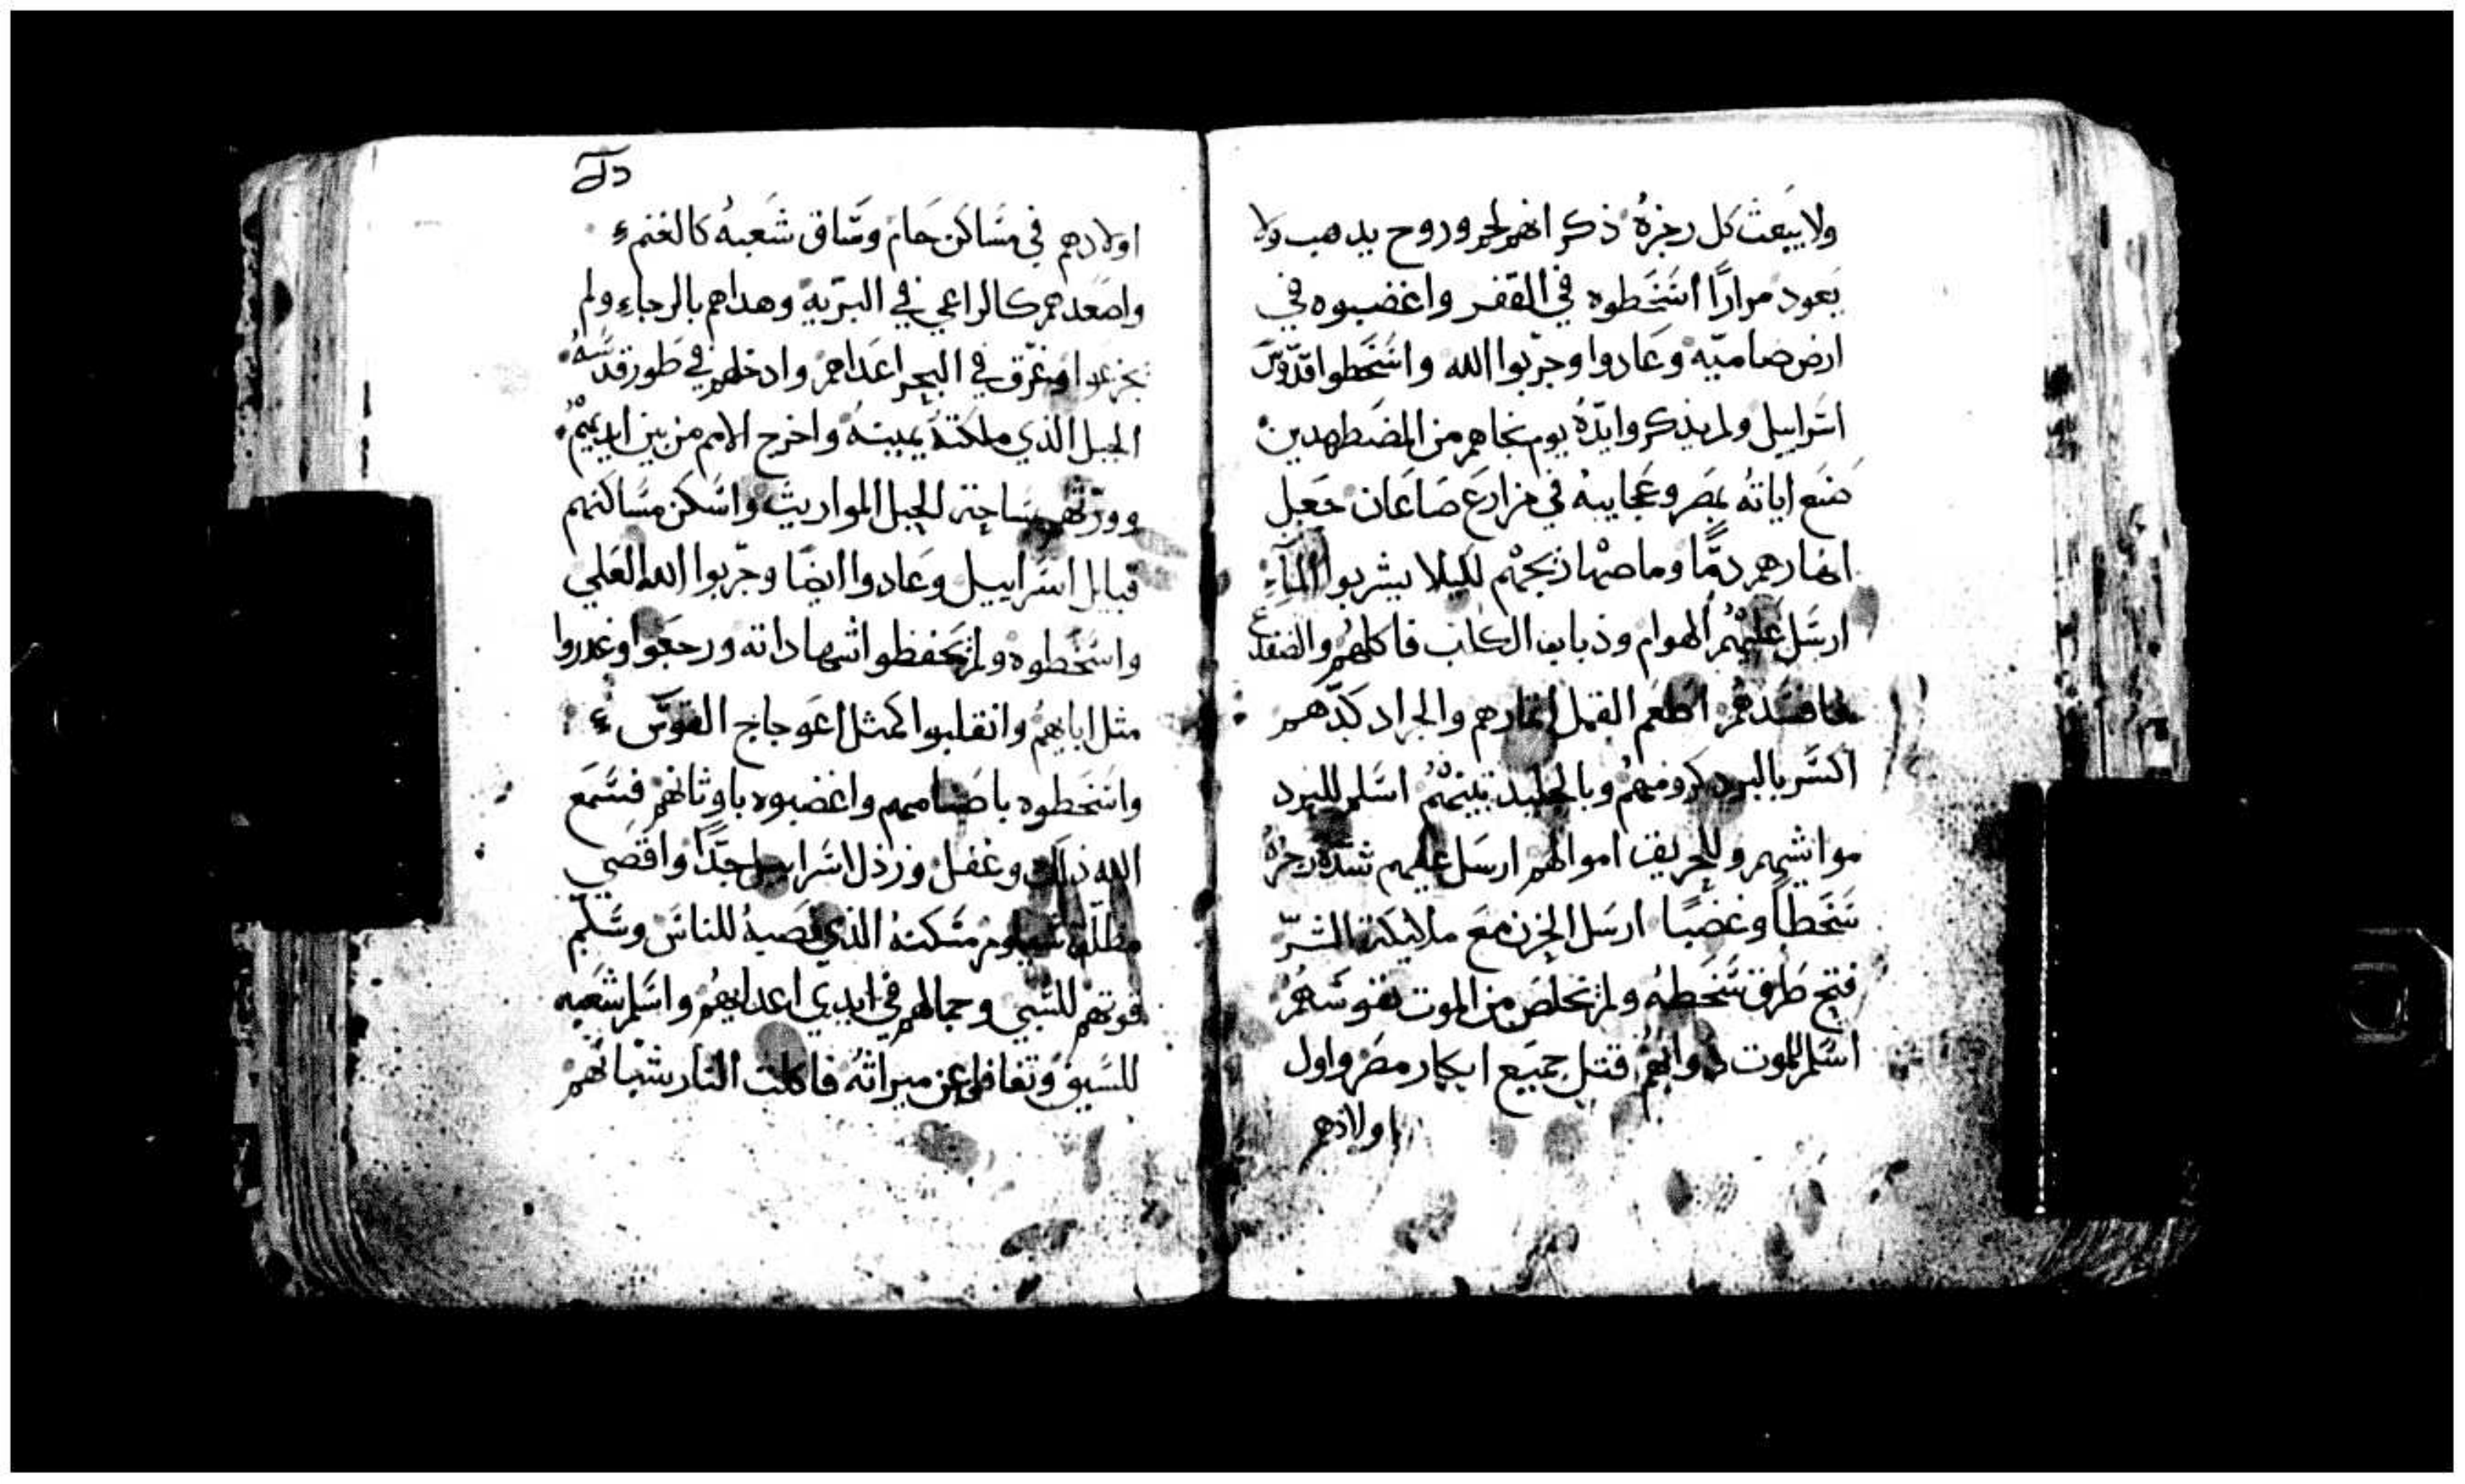 ولا يبعث كل رجزه ذكر انهم لحم وروح يذهب ولا
يعود مرارًا اسخطوه في القفر واغضبوه في
ارض ضاميّه وعادوا وجرّبوا الله واسخطوا قدّوس
اسراييل ولم يذكروا يدّه يوم نجاهم من المضطهدين
صنع اياته بمصر وعجايبه في مزارع صاعان جعل
انهارهم دمًّا وماصهاريجهم لكيلا يشربوا المآء
ارسل عليهم الهوام وذباب الكلاب فاكلهم والضفدع
فافسدهم اطعم القمل اثمارهم والجراد كدّهم
اكسر بالبرد كرومهم وبالجليد تينهم اسلم للبرد
مواشيهم وللحريق اموالهم ارسل عليهم شدّة رجزه
سخطًا وغضبًا ارسل الحزن مع ملايكة الشرّ
فتح طرق سخطه ولم تخلص من الموت نفوسهم
اسلم للموت دوابهم قتل جميع ابكار مصر واول
اولادهم
اولادهم في مساكن حام وساق شعبه كالغنم
واصعدهم كالراعي في البرّيه وهداهم بالرجاء ولم
يجزعوا وغرّق في البحر اعداهم وادخلهم في طور قدسه
الجبل الذي ملكته يمينه واخرج الامم من بين ايديهم
وورّثهم مساحة الحبل المواريث واسكن مساكنهم
قبايل اسراييل وعادوا ايضًا وجرّبوا الله العلي
واسخطوه ولم يحفظوا شهاداته ورجعوا وغدروا
مثل ابايهم وانقلبوا كمثل اعوجاج القوس
واسخطوه باصنامهم واغضبوه باوثانهم فسمع
الله ذلك وغفل ورذل اسراييل جدًّا واقصى
مظلّة شيلوم مسكنه الذي نصبه للناس وسلّم
قوتهم للسّبي وجمالهم في ايدي اعدايهم واسلم شعبه
للسيف وتغافل عن ميراثه فاكلت النار شبانهم